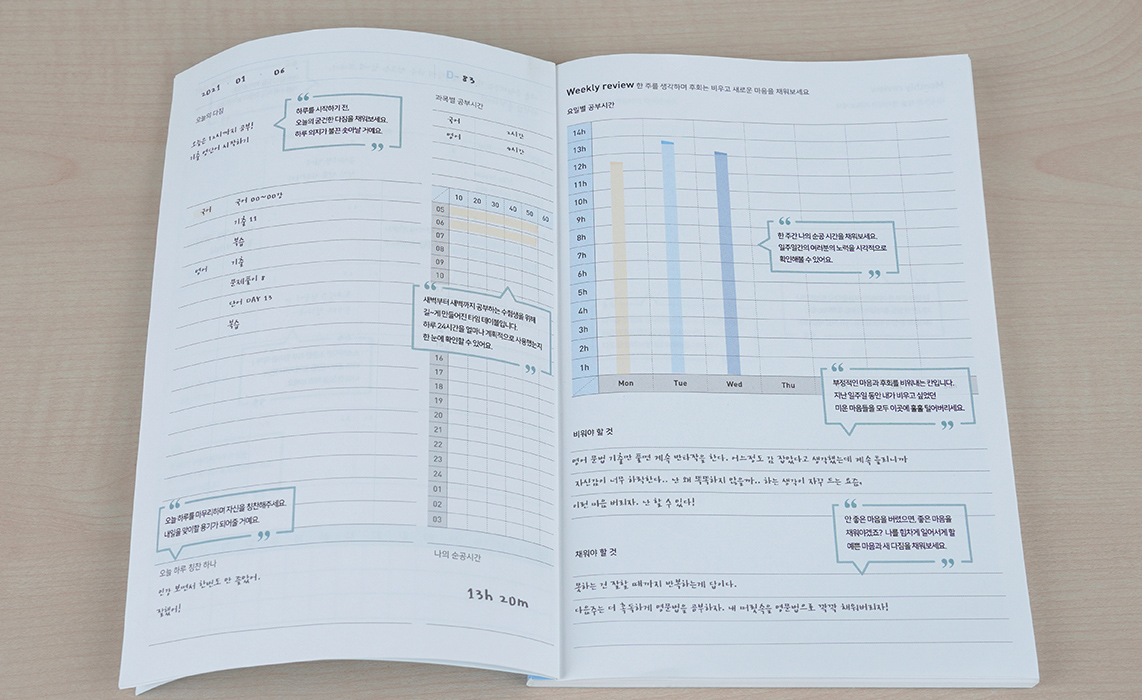 2021 01 06
D-83
오늘의 다짐
오늘은 12시까지 공부!
하루를 시작하기 전,
오늘의 굳건한 다짐을 채워보세요.
하루 의지가 불끈 솟아날 거예요.
과목별 공부시간
국어 2시간
영어
국어 국어 00~00강
기출 11
복습
영어 기출
문제풀이 8
단어 DAY 13
복습
10 20 30 40 50 60
05
06
07
08
09
10
새벽부터 새벽까지 공부하는 수험생을 위해
길~게 만들어진 타임 테이블입니다.
하루 24시간을 얼마나 계획적으로 사용했는지
한 눈에 확인할 수 있어요.
16
17
18
19
20
21
22
23
24
01
02
03
오늘 하루를 마무리하며 자신을 칭찬해주세요.
내일을 맞이할 용기가 되어줄 거예요.
오늘 하루 칭찬 하나
인강 보면서 한번도 안 졸았어.
잘했어!
나의 순공시간
13h 20m
Weekly review 한 주를 생각하며 후회는 비우고 새로운 마음을 채워보세요
요일별 공부시간
14h
13h
12h
11h
10h
9h
8h
7h
6h
5h
4h
3h
2h
1h
Mon Tue Wed Thu
한 주간 나의 순공 시간을 채워보세요.
일주일간의 여러분의 노력을 시각적으로
확인해볼 수 있어요.
부정적인 마음과 후회를 비워내는 칸입니다.
지난 일주일 동안 내가 비우고 싶었던
미운 마음들을 모두 이곳에 훌훌 털어버리세요.
비워야 할 것
영어 문법 기출만 풀면 계속 반타작을 한다. 어느정도 감 잡았다고 생각했는데 계속 틀리니까
자신감이 너무 하락한다.. 난 왜 똑똑하지 않을까.. 하는 생각이 자꾸 드는 요즘,
이런 마음 버리자. 난 할 수 있다!
안 좋은 마음을 버렸으면, 좋은 마음을
채워야겠죠? 나를 힘차게 일어서게 할
예쁜 마음과 새 다짐을 채워보세요.
채워야 할 것
못하는 건 잘할 때까지 반복하는게 답이다.
다음주는 더 혹독하게 영문법을 공부하자. 내 머릿속을 영문법으로 꽉꽉 채워버리자!